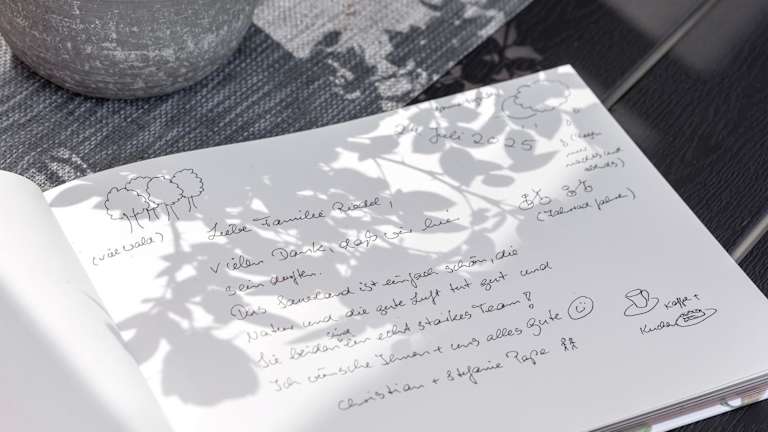 24. Juli 2025
(viel Wald)
Liebe Familie Riedel,
Vielen Dank, daß wir hie
sein durften.
Das Sauerland ist einfach schön, die
Natur und die gute Luft tut gut und
Sie beiden sind ein echt starkes Team!
Ich wünsche Ihnen + uns alles Gute
Christian + Stefanie Pape
(Fahrrad fahren)
Kaffe +
Kuchen